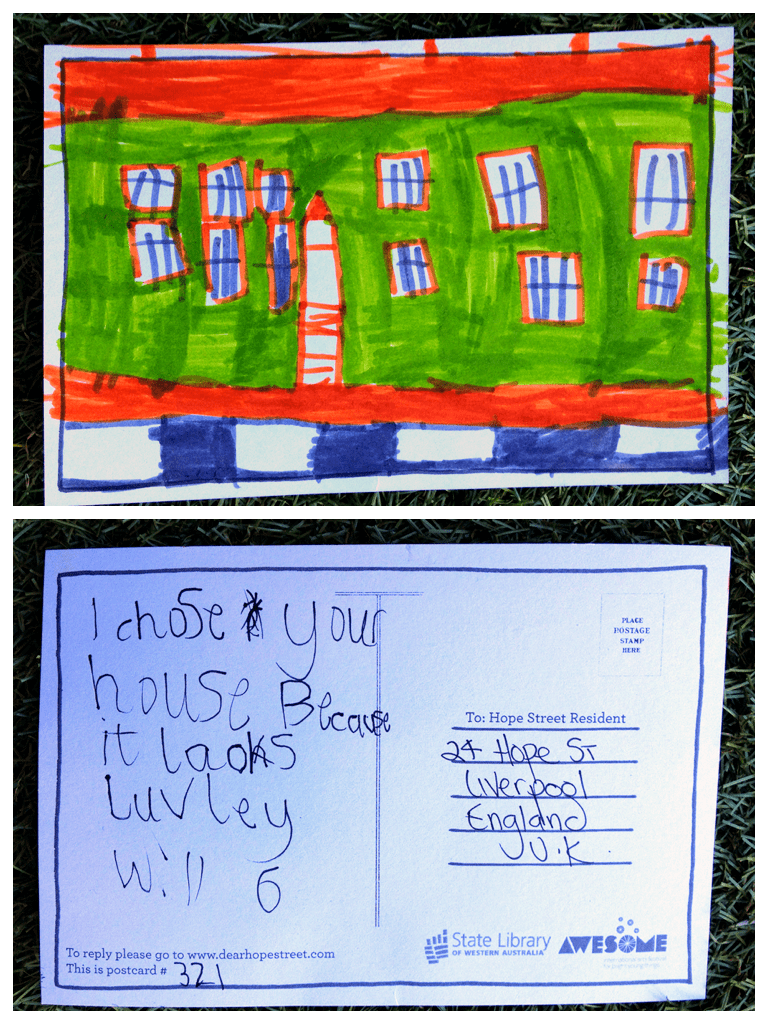 I chose your
house Because
it laoks
Luvley
Will 6
PLACE
POSTAGE
STAMP
HERE
To: Hope Street Resident
24 Hope St
Liverpool
England
U.K.
To reply please go to www.dearhopestreet.com
This is postcard # 321
State Library
OF WESTERN AUSTRALIA
AWESOME